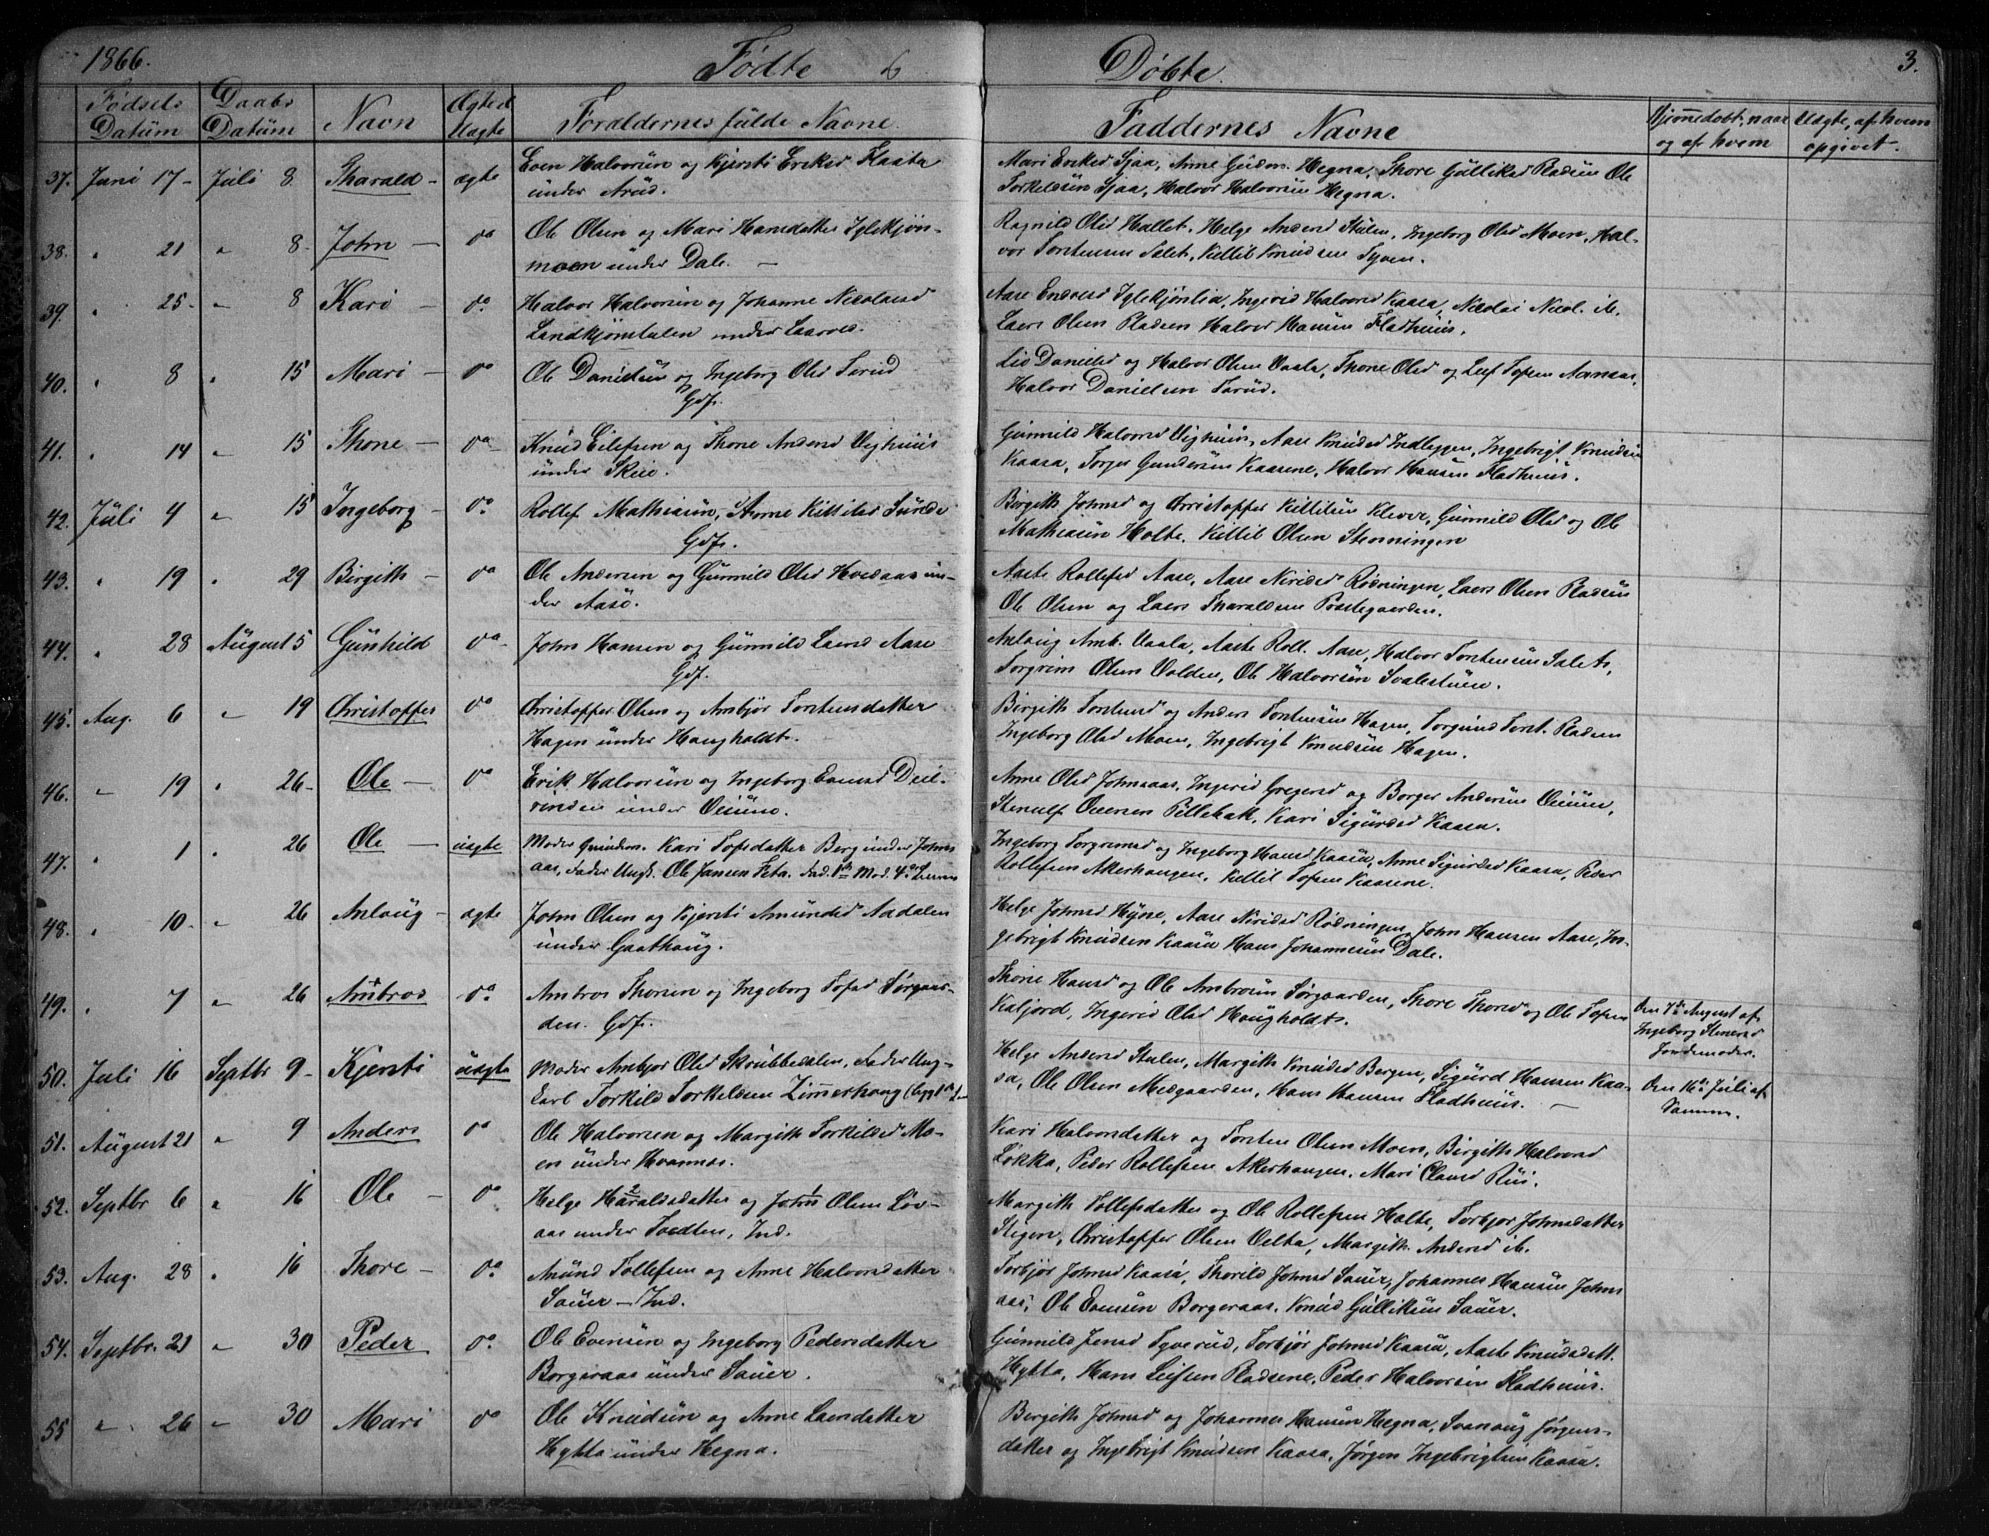 1866. Fødte & Døbte. 3.
Fødsels Datum Daabs Datum Navn Ægte el. Uægte Forældrenes fulde Navne. Faddernes Navne Hjemmedøbt, naar og af hvem Uægte, af hvem opgivet.
37. Juni 17 - Juli 8. Tharald - ægte Even Halvorsen og Kjersti Eriksd Flaata
under Arud.
Mari Eriksd Sjaa, Anne Gudm. Hegna, Thore Gulliksd Pladsen Ole
Torkildsen Sjaa, Halvor Halvorsen Hegna.
38. " 21 " 8. John - do Ole Olsen og Mari Hansdatter Iglekjøn-
moen under Dale. -
Ragnild Olsd Hallet, Helge Andersd Stulen, Ingeborg Olsd Moen, Hal-
vor Torstensen Salet, Kittil Knudsen
39. " 25 - " 8 Kari - do. Halvor Halvorsen og Johanne Nicolaisd
under
Aase Endresd Iglekjønlia, Ingerid Halvorsd Kaasa, Nicolai Nicol. ib.
Laers Olsen Pladsen Halvor Hansen Fladhuus.
40. " 8 " 15 Mari - do Ole Danielsen og Ingeborg Olsd
Gdf.
Liv Danielsd og Halvor Olsen Vaala, Thone Olsd og Leif Tofsen Aanaas,
Halvor Danielsen
41. " 14 " 15 Thone - do Knud Eilefsen og Thone Andersd Veghuus
under Skue.
Gunnild Halvorsd Veghuus, Aase Knudsd Indleggen, Ingebrigt Knudsen
Kaasa, Torger Gundersen Kaasene, Halvor Hansen Fladhuus.
42. Juli 4 " 15 Ingeborg - do. Rollef Mathisen, Anne Kittilsd Sunde
Gdf.
Birgith Johnsd og Christoffer Kittilsen Klever, Gunnild Olsd og Ole
Mathisen Holte, Kittil Olsen Stenningen
43. " 19 " 29 Birgith - do Ole Andersen og Gunnild Olsd Hvesaas un-
der Aase.
Aaste Rollefsd Aase, Aase Nirisd Rødningen, Laers Olsen Pladsen
Ole Olsen og Laers Tharaldsen Præstegaarden.
44. " 28 August 5 Gunhild do John Hansen og Gunnild Laersd Aase
Gdf.
Anlaug Amb. Vaala, Aaste Roll. Aase, Halvor Torstensen Salet,
Torgrim Olsen Volden, Ole Halvorsen Svalestuen.
45. Aug. 6 " 19 Christoffer do Christoffer Olsen og Ambjør Torstensdatter
Hagen under Haugholdt.
Birgith Torstensd og Anders Torstensen Hagen, Torgund Torst. Pladsen
Ingeborg Olsd Moen, Ingebrigt Knudsen Hagen.
46. " 19 " 26 - Ole - do Erik Halvorsen og Ingeborg Evensd
under
Anne Olsd Johnsaas, Ingerid Gregersd og Borger Andersen
Stenulf Pillebak, Kari Sigurdsd Kaasa.
47. " 1 " 26 Ole - uægte Moder Kari Tofsdatter Berg under Johns-
aas, Fader Ungk. Ole Jansen Fad. 1ste Mod. 4de
Ingeborg Torgrimsd og Ingeborg Hansd Kaasa, Anne Sigurdsd Kaasa, Peder
Rollefsen Akerhaugen, Kittil Tofsen Kaasene.
48. " 10. " 26 Anlaug - ægte John Olsen og Kjersti Amundsd Aadalen
under Gaathaug.
Helge Johnsd Aase Nirisd Rødningen, John Hansen Aase, In-
gebrigt Knudsen Kaasa Hans Johannesen Dale.
49. " 7 " 26 Ambros do. Ambros Thorsen og Ingeborg Tofsd Sørgaar-
den. Gdf.
Thone Hansd og Ole Ambrosen Sørgaarden, Thore Thorsd og Ole Tofsen
Kalsjord, Ingerid Olsd Haugholdt.
Den 7de August af
Ingeborg Stenersd
Jordemoder.
50. Juli 16 Septbr 9 - Kjersti uægte Moder Ambjør Olsd Skrubbedalen, Fader Ung-
karl Torkild Torkildsen Zimerhaug
Helge Andersd Stulen, Margith Knudsd Bergen, Sigurd Hansen Kaa-
sa, Ole Olsen Midgaarden, Hans Hansen Fladhuus. -
Den 16de Juli af
Samme.
51. August 21 " 9 Anders do Ole Halvorsen og Margith Torkildsd Mo-
en under Hvamaas.
Kari Halvorsdatter og Torsten Olsen Moen, Birgith Halvorsd
Løkka, Peder Rollefsen Akerhaugen, Mari Rui.
52. Septbr 6 " 16 Ole - do Helge Haraldsdatter og John Olsen Løv-
aas under Ind.
Margith Tollefsdatter og Ole Rollefsen Holte, Torbjør Johnsdatter
Stigen, Christoffer Olsen Velta, Margith Andersd ib.
53. Aug. 28 " 16 Thore - do. Amund Tollefsen og Anne Halvorsdatter
Sauer - Ind.
Torbjør Johnsd Kaasa, Thorild Johnsd Sauer, Johannes Hansen Johns-
aas, Ole Evensen Borgeraas. Knud Gulliksen Sauer.
54. Septbr. 21 " 30 Peder do. Ole Evensen og Ingeborg Pedersdatter
Borgeraas under Sauer.
Gunnild Jensd Tyverud, Torbjør Johnsd Kaasa, Aaste Knudsdatt.
Hytta, Hans Leifsen Pladsene, Peder Halvorsen Fladhuus.
55 " 26 " 30 Mari do Ole Knudsen og Anne Laersdatter
Hytta under Hegna.
Birgith Johnsd og Johannes Hansen Hegna, Svanaug Jørgens-
datter og Ingebrigt Knudsen Kaasa, Jørgen Ingebrigtsen Kaasa.